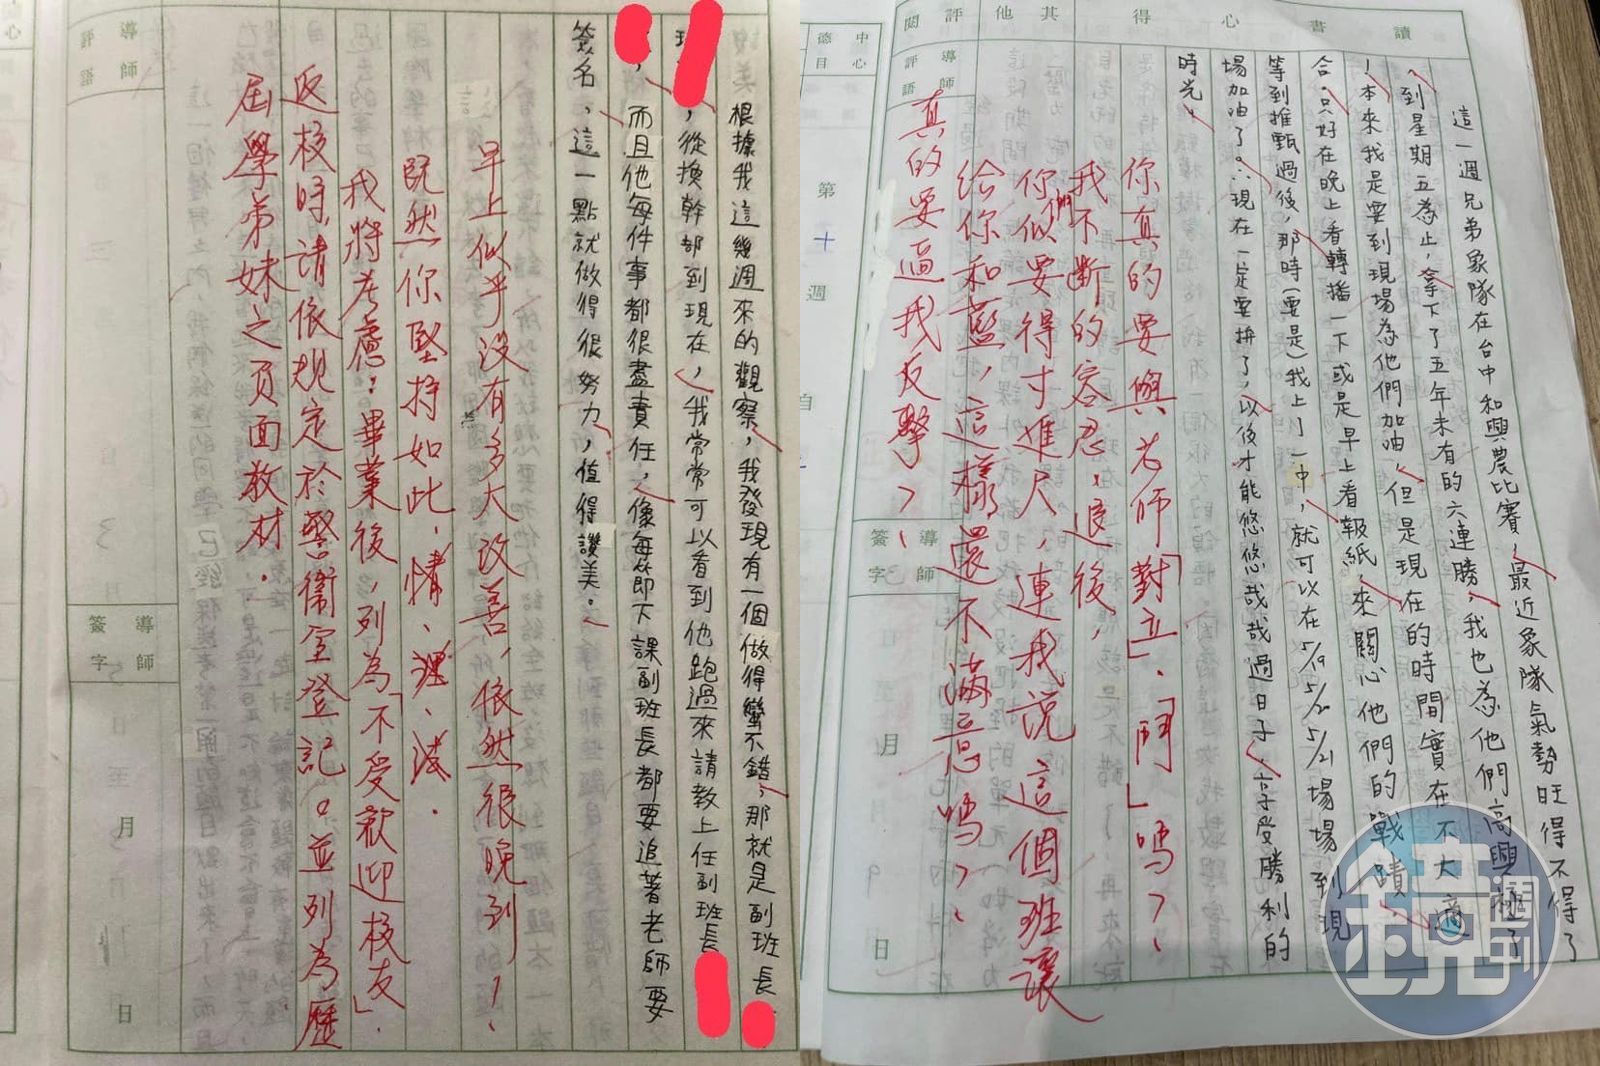 讀書心得
其他
評閱
中心德目
導師評語
這一週兄弟象隊在台中和興農比賽，最近象隊氣勢旺得不得了
，到星期五為止，拿下了五年未有的六連勝，我也為他們高興極了
！本來我是要到現場為他們加油，但是現在的時間實在不大適
合，只好在晚上看轉播一下或是早上看報紙來關心他們的戰蹟，
等到推甄過後，那時（要是）我上了一中，就可以在5/19 5/20 5/21場場到現
場加油了。∴現在一定要拚了，以後才能悠悠哉哉過日子，享受勝利的
時光。
你真的要與老師「對立」、「鬥」嗎？！
我不斷的容忍，退後，
你們似要得寸進尺，連我說這個班讓
給你和藍，這樣還不滿意嗎？！
真的要逼我反擊？！
第十週
自
月
日
導師簽字
導師評語
根據我這幾週來的觀察，我發現有一個做得蠻不錯，那就是副班長
，從換幹部到現在，我常常可以看到他跑過來請教上任副班長
，而且他每件事都很盡責任，像每節下課副班長都要追著老師要
簽名，這一點就做得很努力，值得讚美。
早上似乎沒有多大改善，依然很晚到！
既然你堅持如此，情、理、法，
我將考慮：畢業後，列為「不受歡迎校友」．
返校時，請依規定於警衛室登記。並列為歷
屆學弟妹之負面教材．
導師簽字
月
日
鏡週刊